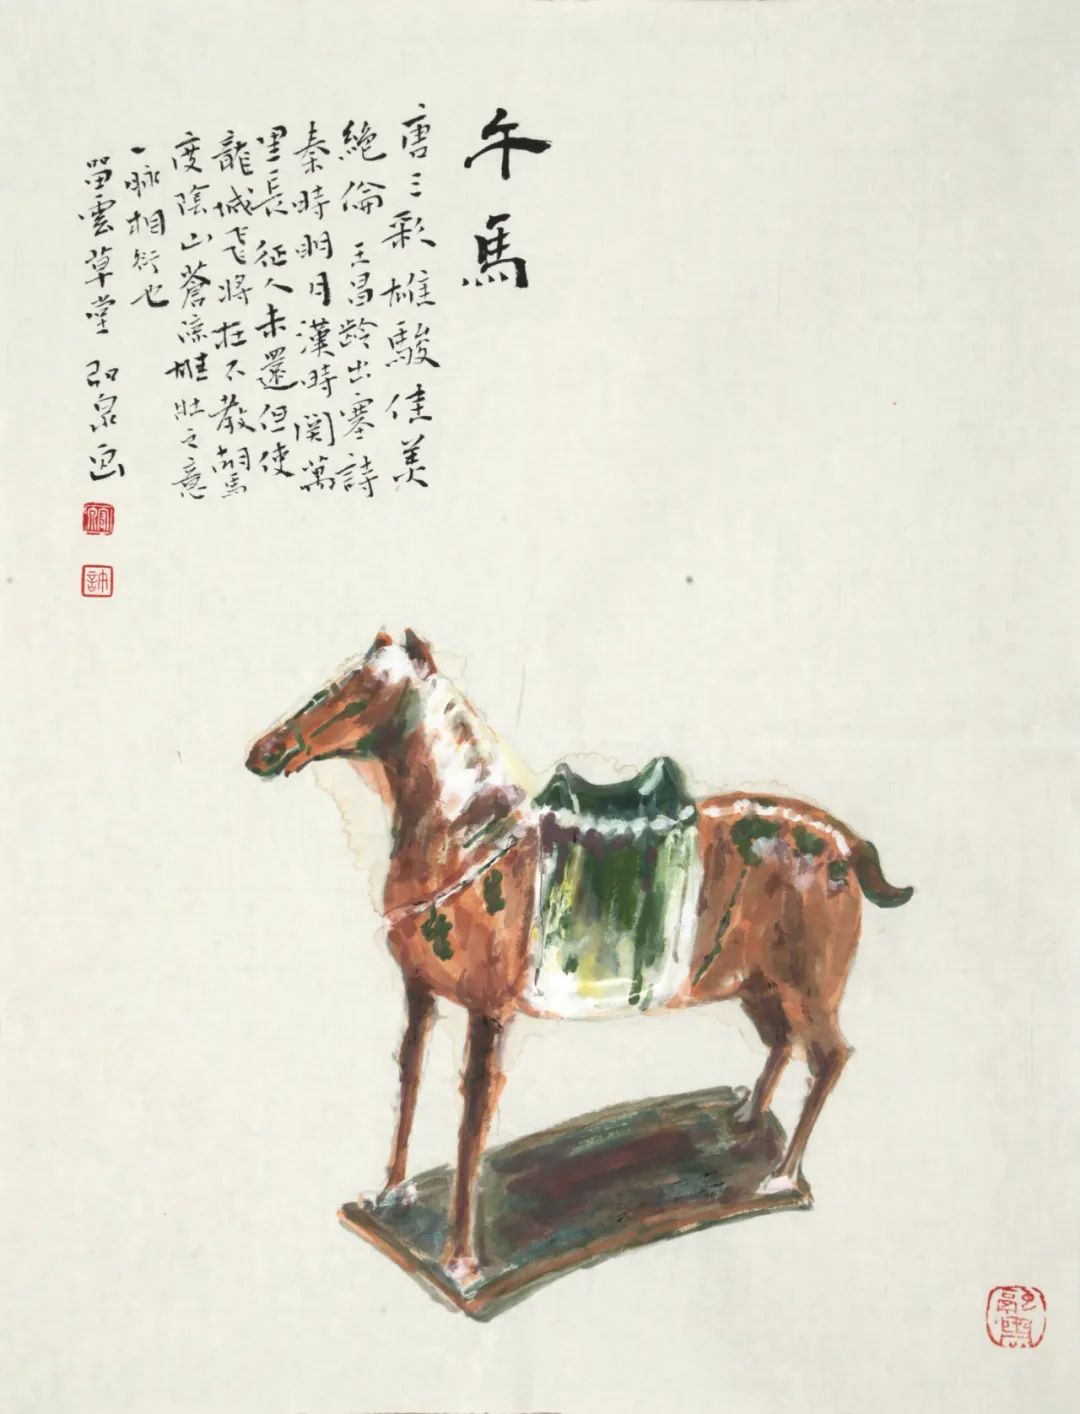 午馬
唐三彩雄駿佳美
絶倫王昌龄出塞詩
秦時明月漢時関萬
里長征人未還但使
龍城飛將在不教胡馬
度陰山蒼涼雄壯之意
一脉相衍也
畱雲草堂 泉画